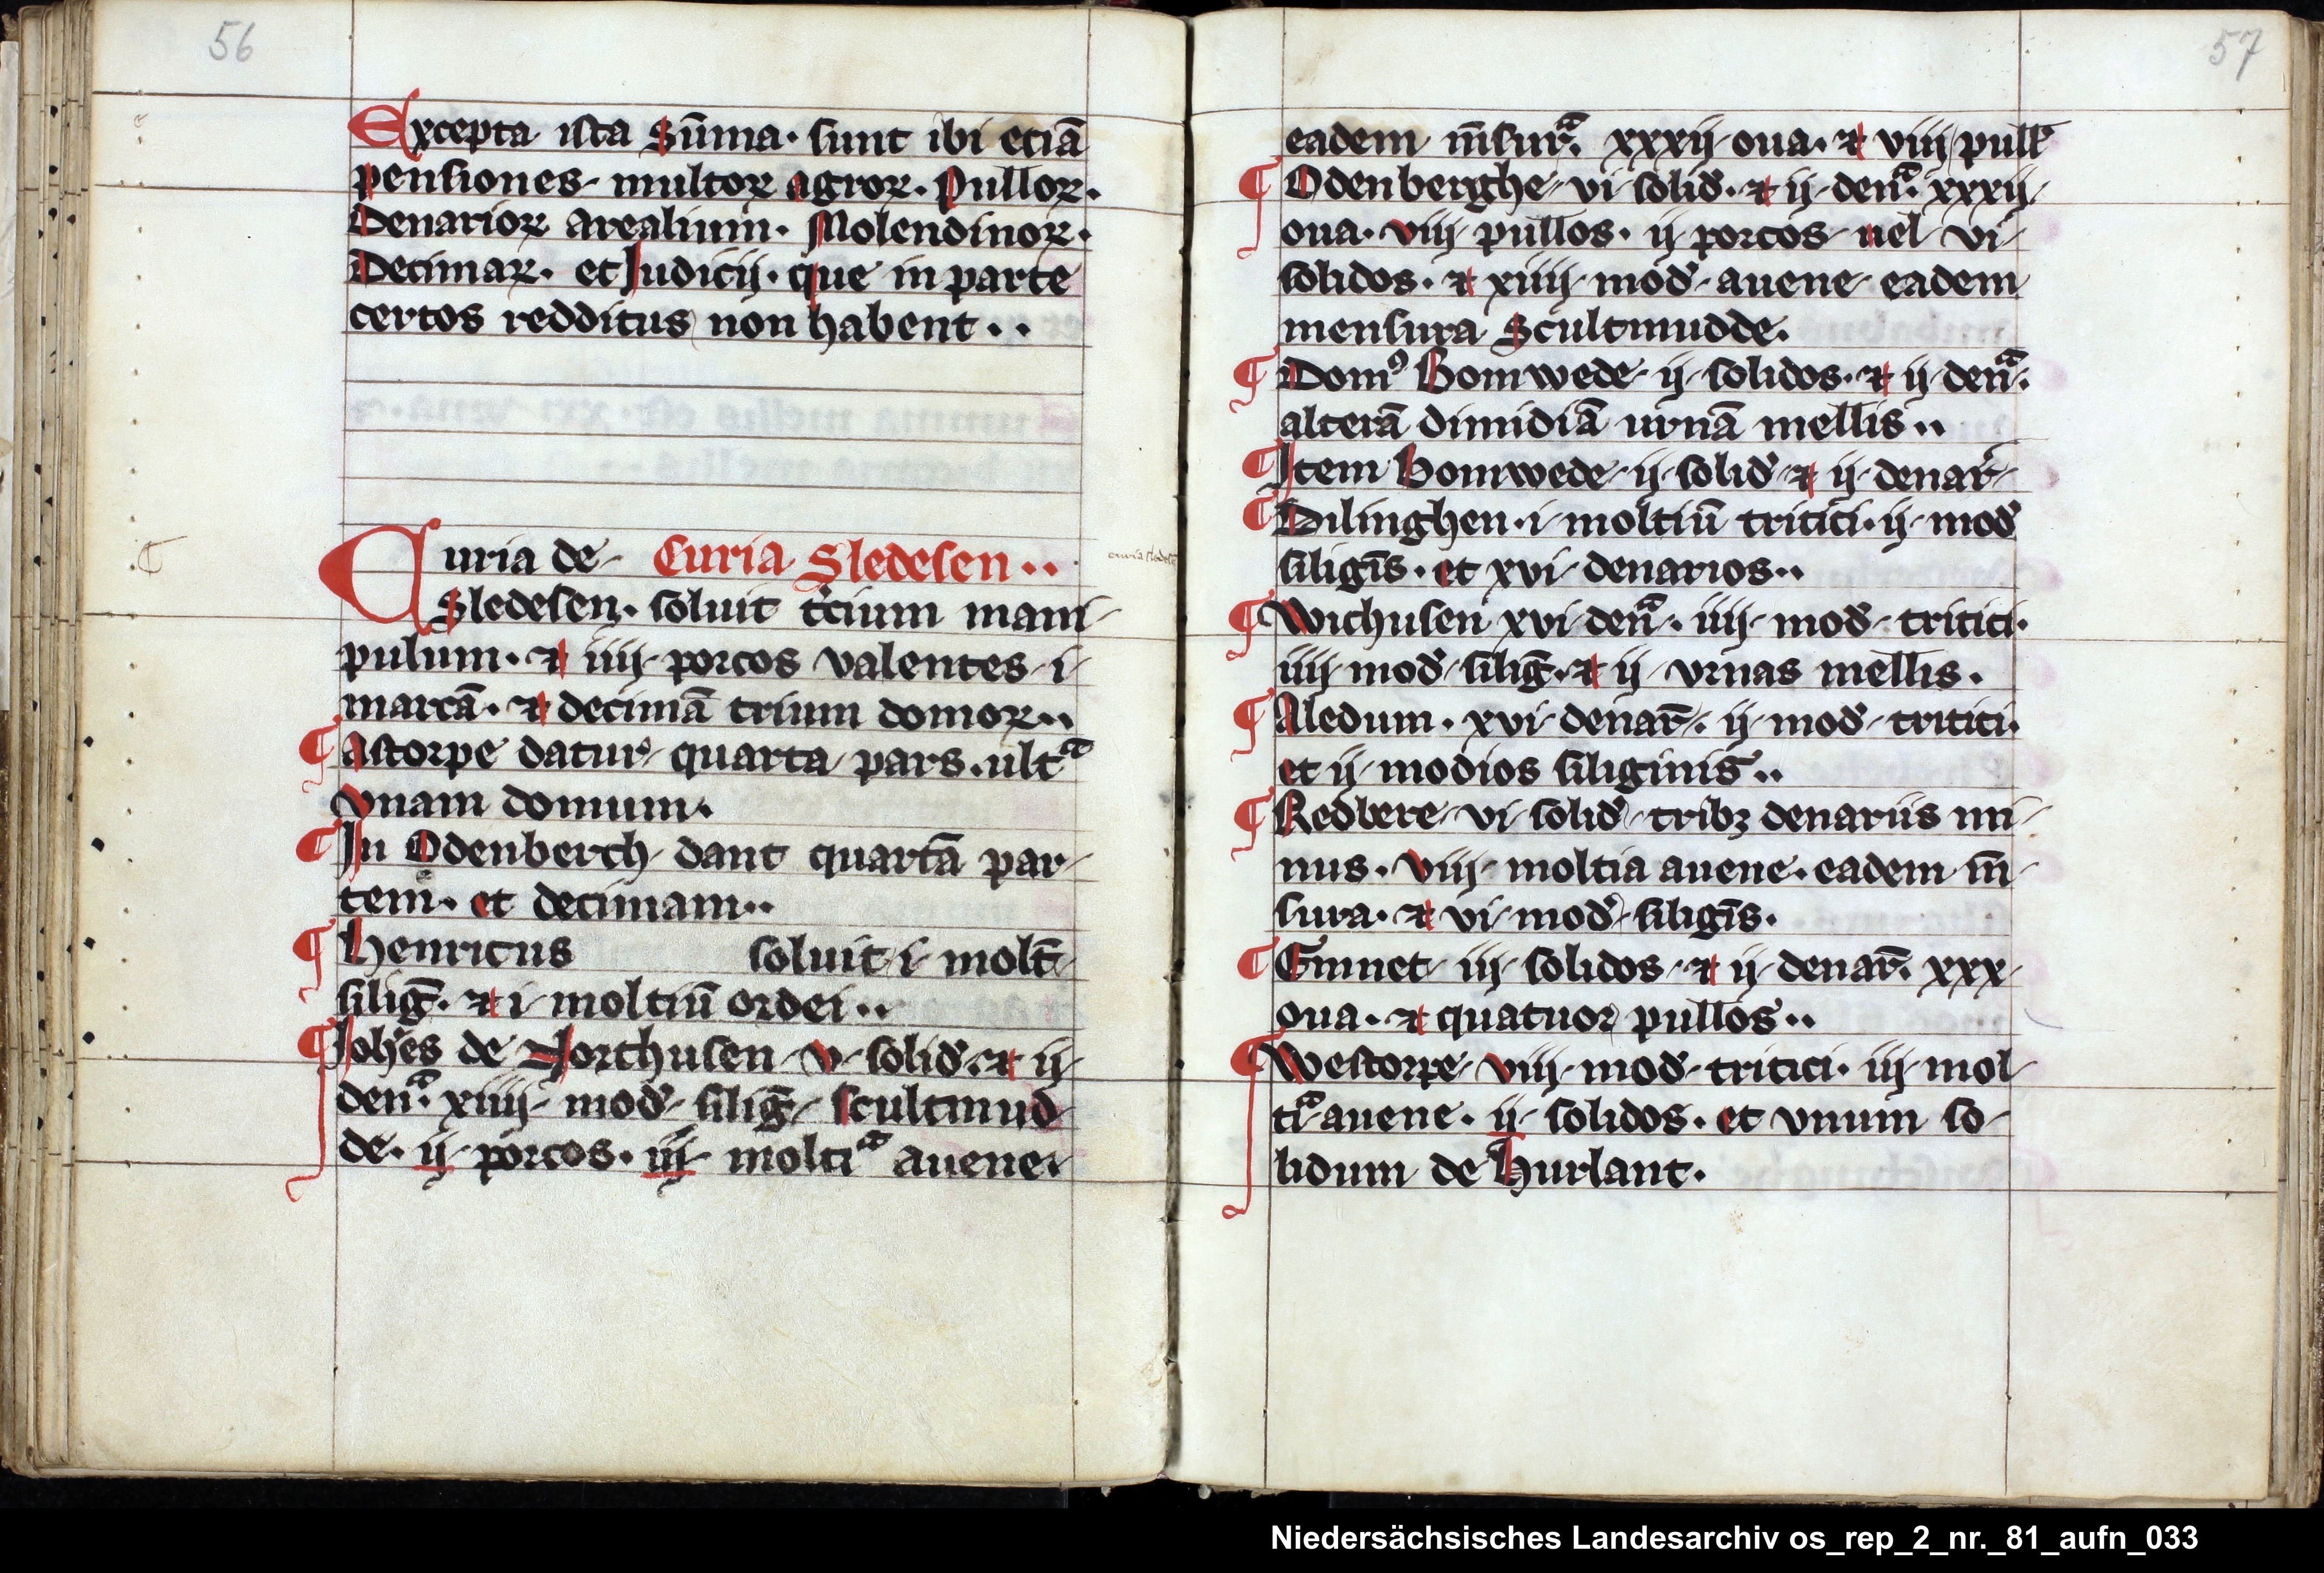 56
Excepta ista sūma. sunt ibi etiā
pensiones multoꝝ agroꝝ. Pulloꝝ.
Denarioꝝ arealium. Molendinoꝝ.
Decimaꝝ. et Judicij. que in parte
certos redditus non habent..
Curia de Curia Sledesen..
curia sledesē
Sledesen. soluit t̄cium mani
pulum. ⁊ iiij porcos valentes i
marcā. ⁊ decimā trium domoꝝ..
¶ Astorpe datur quarta pars. ultᵃ
vnam domum.
¶ In Odenberch dant quartā par
tem. et decimam..
¶ Henricus soluit i molt̄
siliḡ. ⁊ i moltiū ordei..
¶ Joh̄es de Northusen v solid̄. ⁊ ij
denᵃ. xiiij mod̄ siliḡ scultmud
de. ij porcos. iij moltiᵃ auene.
57
eadem m̄surᵃ. xxxij oua. ⁊ viij pull̄
¶ Odenberghe vi solid̄. ⁊ ij denᵃ. xxxij
oua. viij pullos. ij porcos uel vi
solidos. ⁊ xiiij mod̄ auene eadem
mensura Scultmudde.
¶ Domꝰ Bomwede ij solidos. ⁊ ij denᵃ.
alterā dimidiā urnā mellis..
¶ Item Bomwede ij solid̄ ⁊ ij denar̄
¶ Dilinghen. i moltiū tritici. ij mod̄
siligīs. et xvi denarios..
¶ Wichusen xvi denᵃ. iiij mod̄ tritici.
iiij mod̄ siliḡ. ⁊ ij vrnas mellis.
¶ Aledum. xvi denar̄. ij mod̄ tritici.
et ij modios siliginis..
¶ Redbere vi solid̄ tribꝫ denariis mi
nus. viij moltia auene. eadem m̄
sura. ⁊ vi mod̄ siligīs.
¶ Emnet iij solidos ⁊ ij denar̄. xxx
oua. ⁊ quatuor pullos..
¶ Westorpe viij mod̄ tritici. iij mol
tiᵃ auene. ij solidos. et vnum so
lidum de Hurlant.
Niedersächsisches Landesarchiv os_rep_2_nr._81_aufn_033